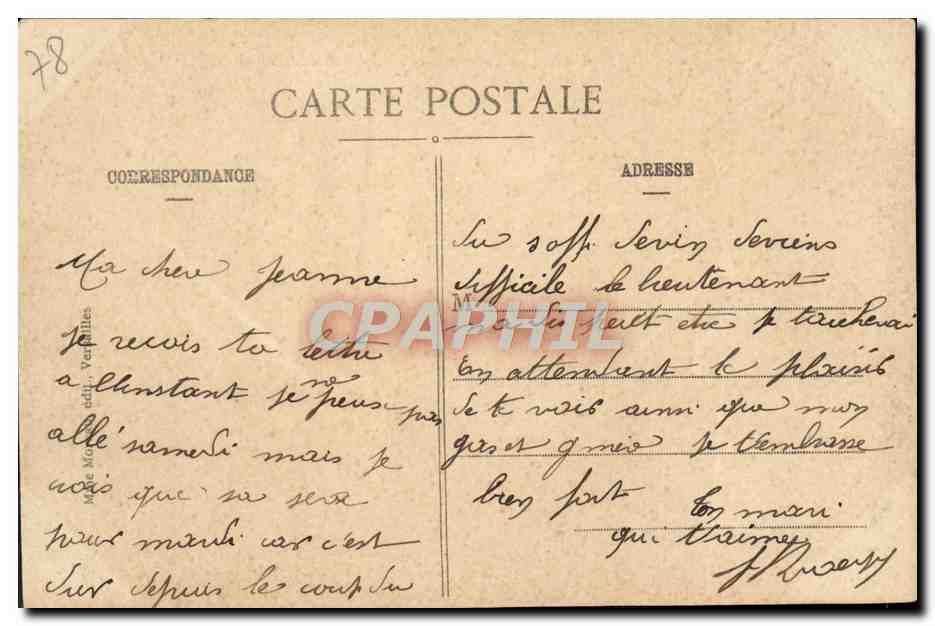 78
CARTE POSTALE
CORRESPONDANCE
Ma chere Jeanne
Je recois ta lettre
a l'instant je ne peus pas
allé samedi mais je
crois que sa sera
pour mardi car c'est
sur depuis le coup du
Mme édit. Versailles
ADRESSE
M
du s off. devin deviens
difficile le lieutenant
mardi peut etre je tacherai
En attendent le plaisir
de te voir ainsi que mon
gas et je t'embrasse
bien fort
Ton mari
qui t'aime
CPAPHIL